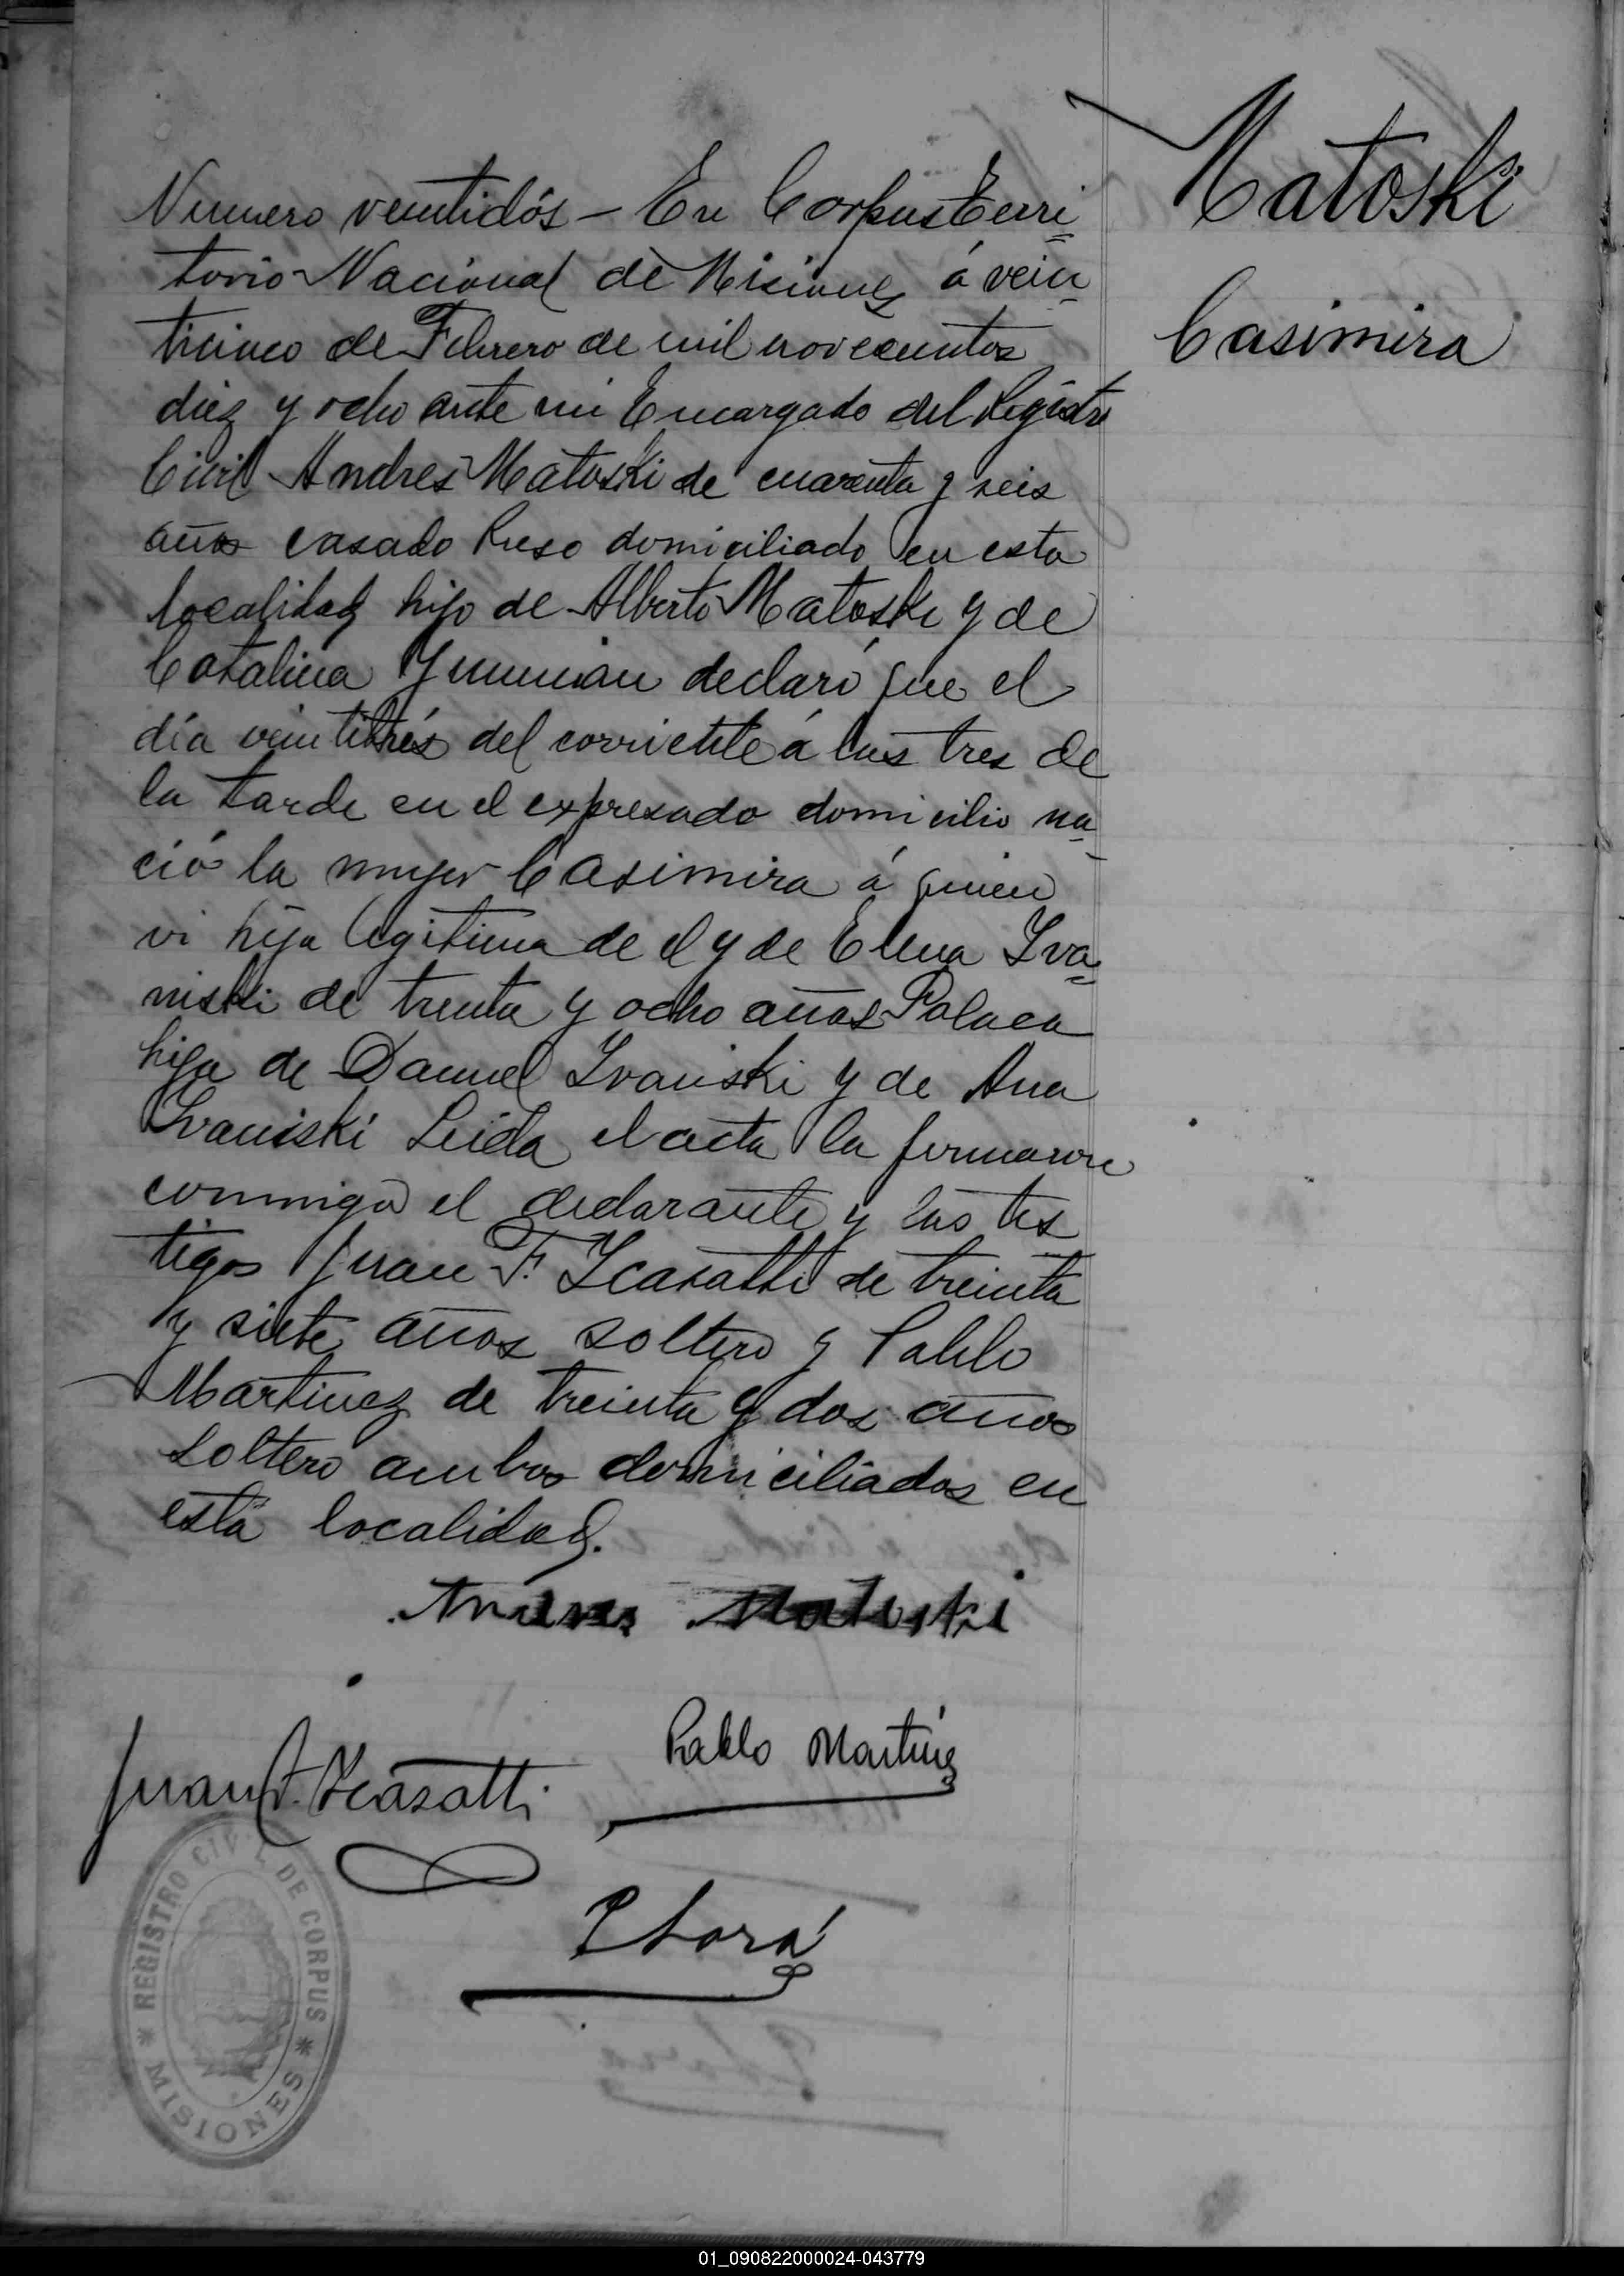 Matoski
Casimira
Numero veintidós - En Corpus Terri
torio Nacional de Misiones á vein
ticinco de Febrero de mil novecientos
diez y ocho ante mi Encargado del Registro
Civil Andres Matoski de cuarenta y seis
años casado Ruso domiciliado en esta
localidad hijo de Alberto Matoski y de
Catalina declaró que el
día veintitrés del corriente á las tres de
la tarde en el expresado domicilio na
ció la mujer Casimira á quien
vi hija legitima de el y de Elena Iva
niski de trenta y ocho años Polaca
hija de Daniel Ivaniski y de Ana
Ivaniski Leida el acta la firmaron
conmigo el declarante y los tes
tigos Juan F. Icasatti de treinta
y siete años soltero y Pablo
Martinez de treinta y dos años
soltero ambos domiciliados en
esta localidad.
Andres Matoski
Pablo Martinez
Juan F. Icasatti
REGISTRO CIVIL DE CORPUS
* MISIONES *
01_090822000024-043779